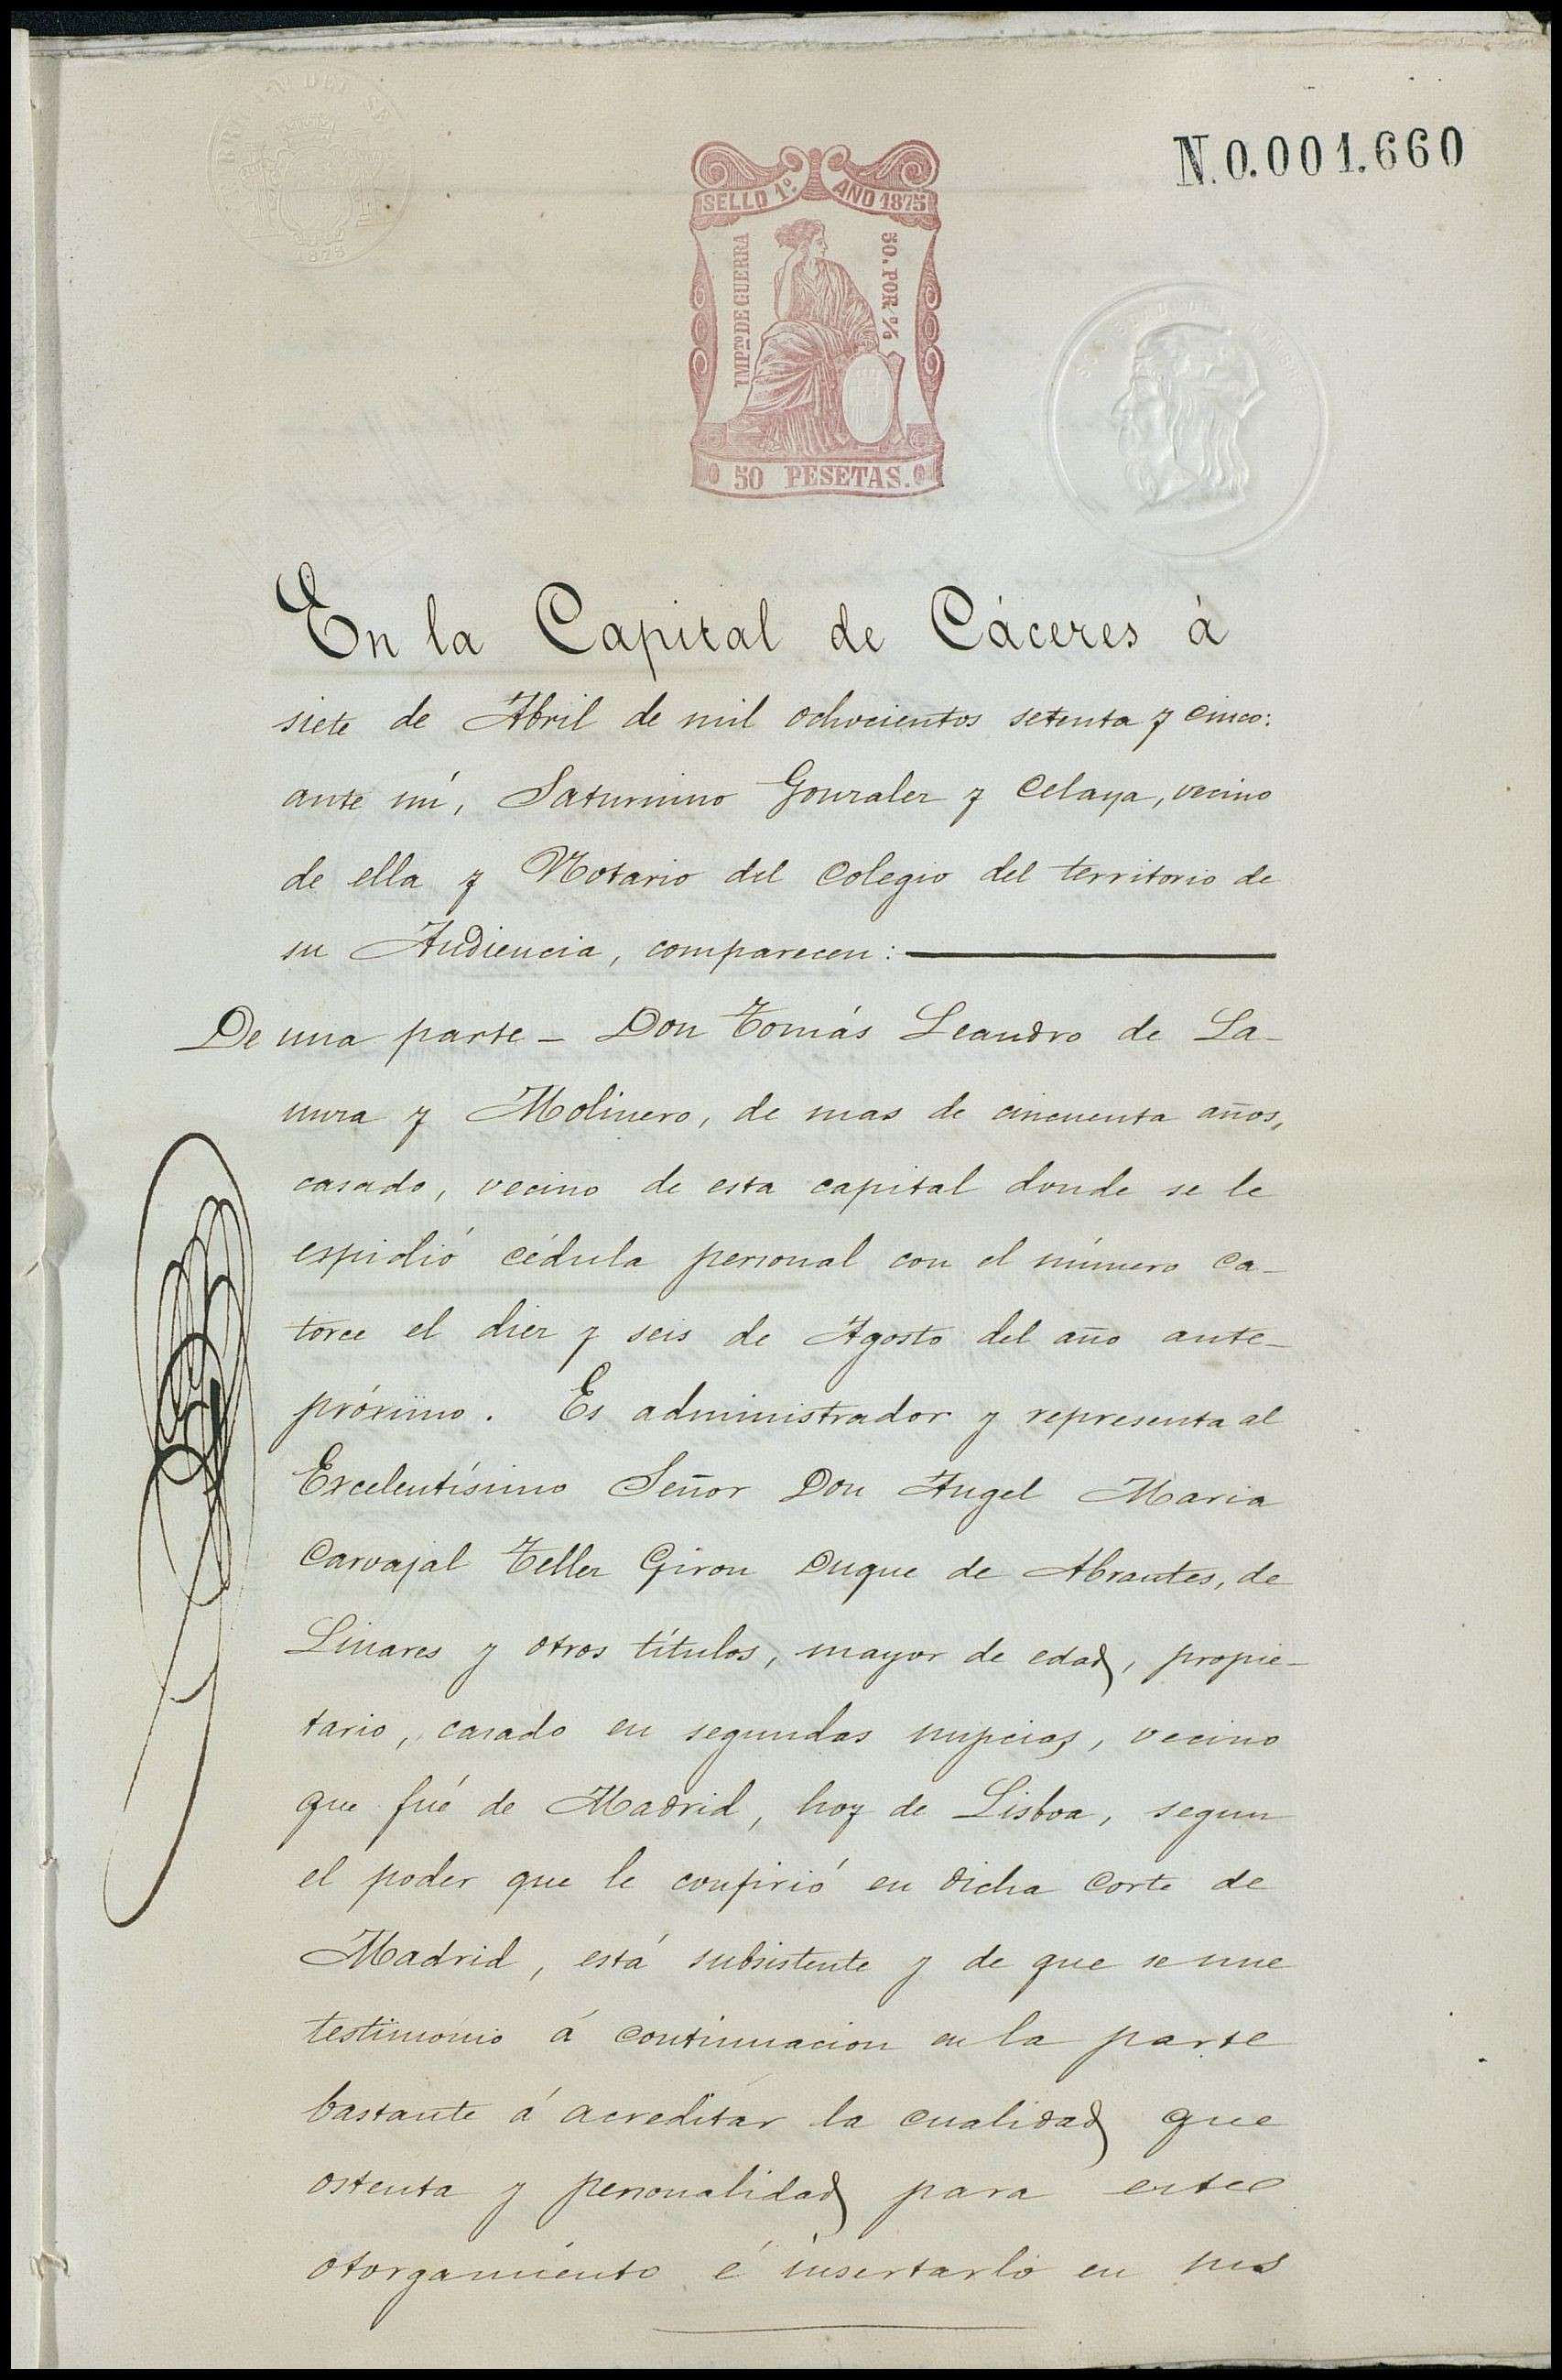 N.0.001.660
SELLO 1º. AÑO 1875
IMPTO DE GUERRA
50. POR %
50 PESETAS.
1875
En la Capital de Cáceres á
siete de Abril de mil ochocientos setenta y cinco:
ante mí, Saturnino Gonzalez y Celaya, vecino
de ella y Notario del Colegio del territorio de
su Audiencia, comparecen:
De una parte - Don Tomás Leandro de La-
nuza y Molinero, de mas de cincuenta años,
casado, vecino de esta capital donde se le
espidió cédula personal con el número ca-
torce el diez y seis de Agosto del año ante-
próximo. Es administrador y representa al
Excelentísimo Señor Don Angel Maria
Carvajal Tellez Giron Duque de Abrantes, de
Linares y otros títulos, mayor de edad, propie-
tario, casado en segundas nupcias, vecino
que fué de Madrid, hoy de Lisboa, segun
el poder que le confirió en dicha Corte de
Madrid, está subsistente y de que se une
testimonio á continuacion en la parte
bastante á acreditar la cualidad que
ostenta y personalidad para este
otorgamiento é insertarlo en sus